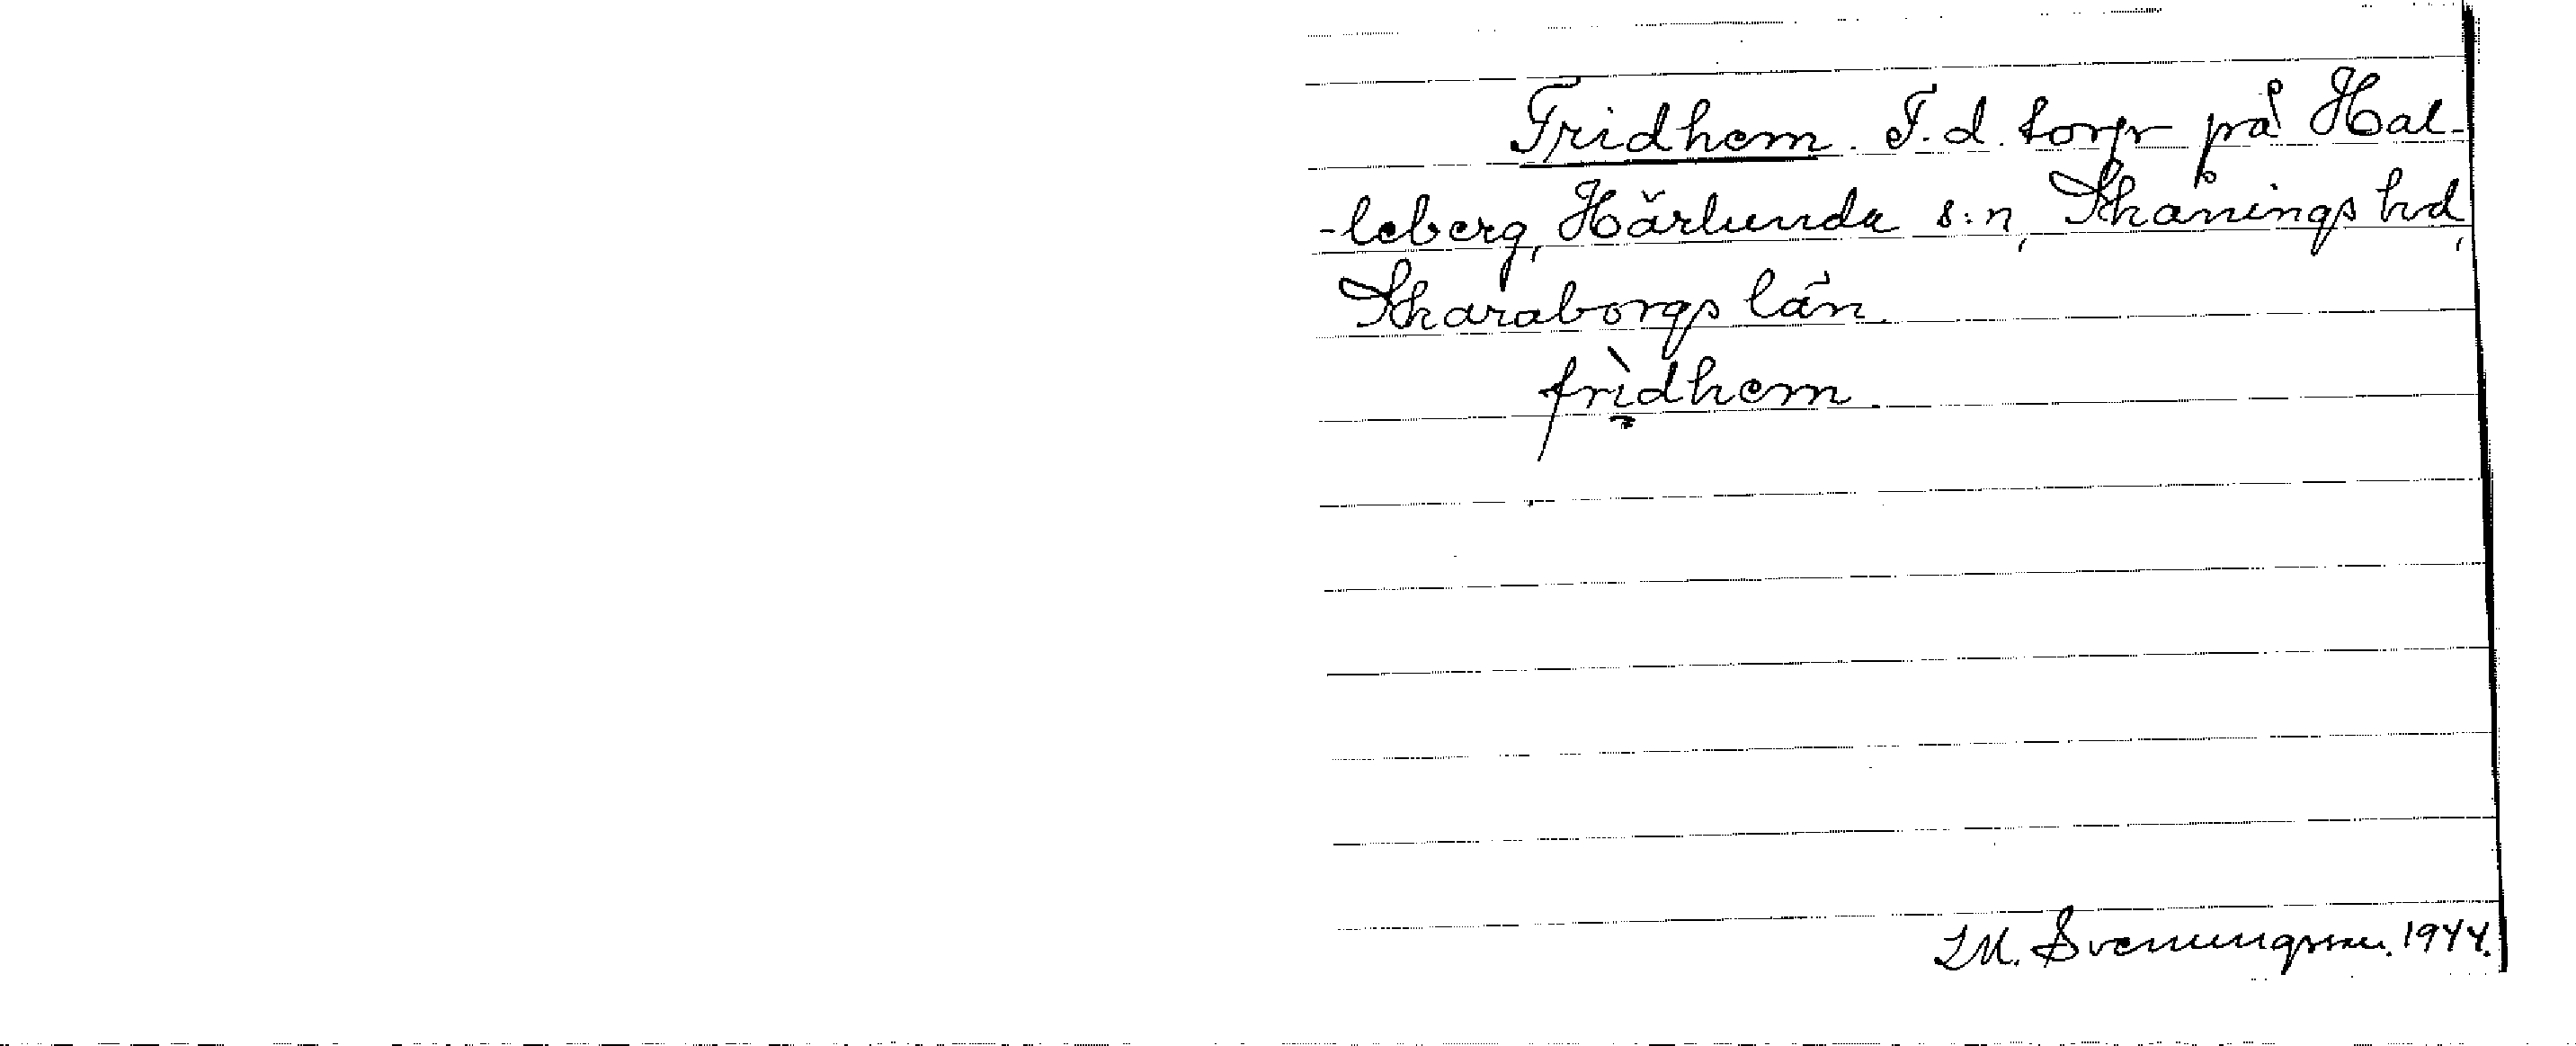 Fridhem. F.d. torp på Hal-
-leberg, Härlunda s:n, Skånings hd,
Skaraborgs län.
frì̠dhem.
I.M. Svenungsson. 1944.